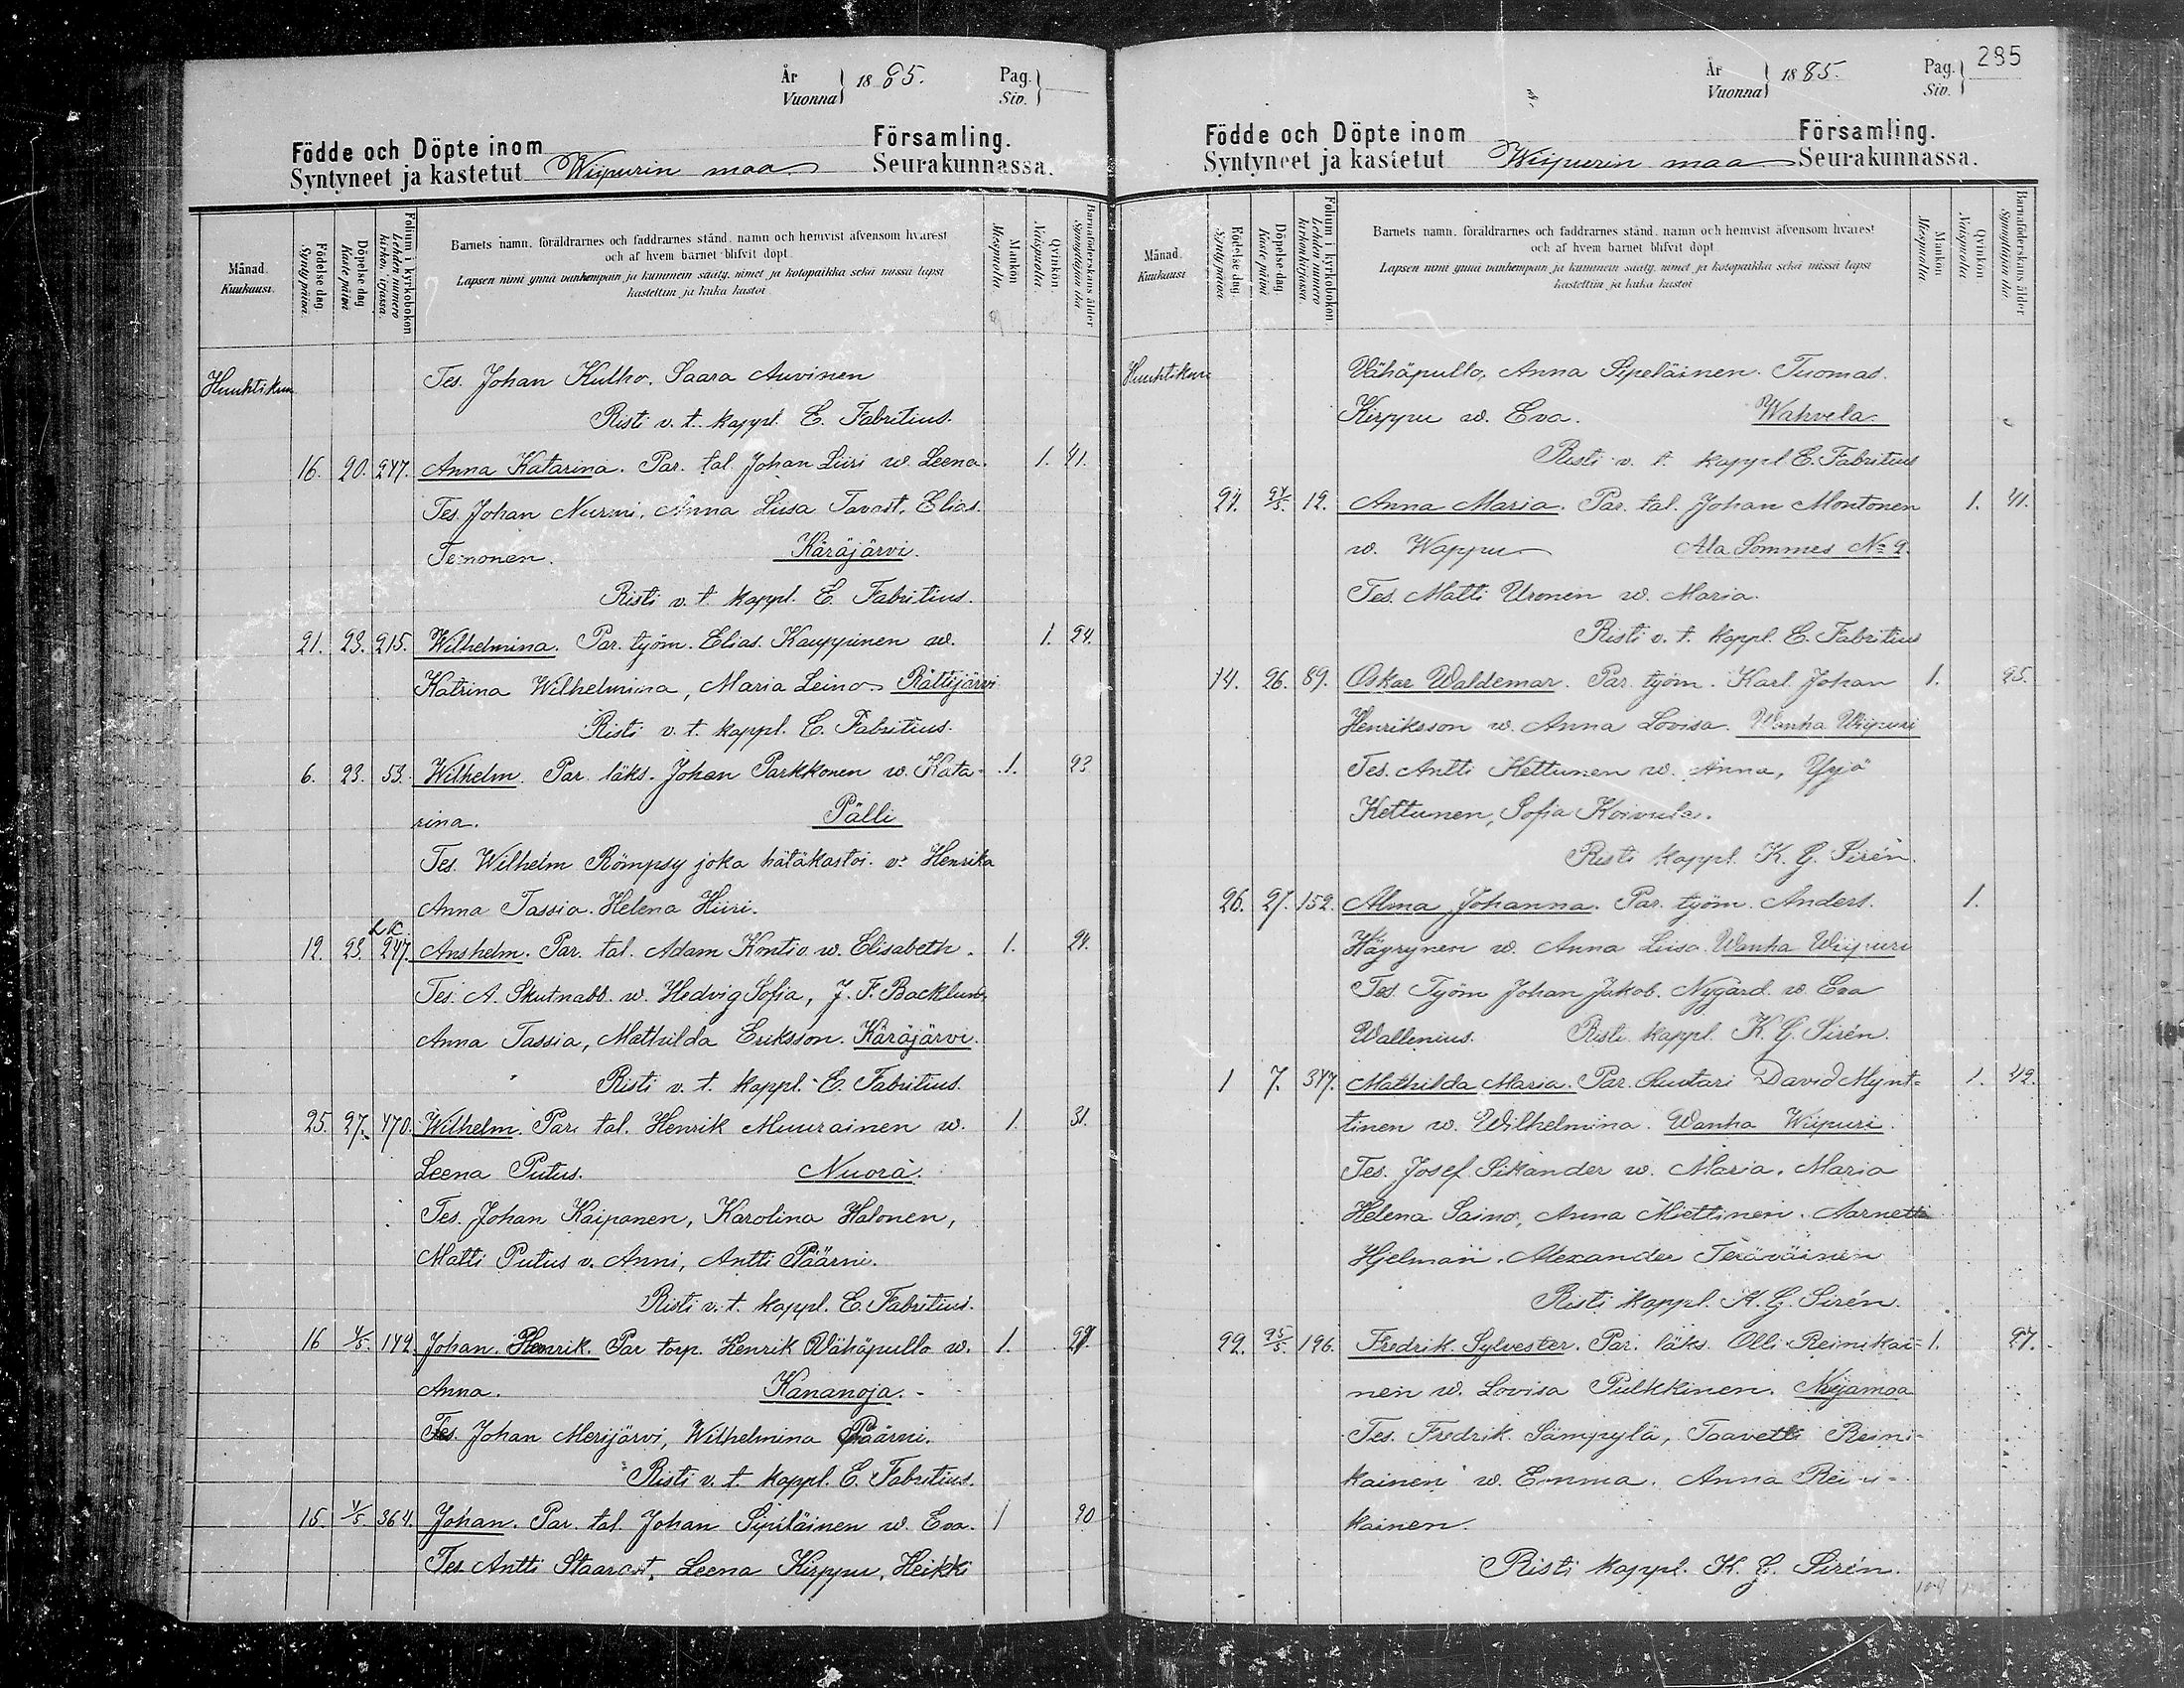 År Vuonna 1885. Pag. Siv.
Födde och Döpte inom Församling.
Syntyneet ja kastetut Wiipurin maa Seurakunnassa.
Månad. Kuukausi.
Födelse dag. Synty päiwä.
Döpelse dag. Kaste päiwä
Folium i kyrkobokon Lehden numero kirkon kirjassa.
Barnets namn, föräldrarnes och faddrarnes stånd, namn och hemvist äfvensom hvarest
och af hvem barnet blifvit döpt.
Lapsen nimi ynnä vanhempain ja kummein sääty, nimet ja kotopaikka sekä missä lapsi
kastettiin ja kuka kastoi
Mankön Miespuolia.
Qvinkön Naispuolia.
Barnaföderskans ålder Synnyttäjän ikä
Huuhtikuu Tes. Johan Kulho. Saara Auvinen
Risti v. t. kappl. E. Fabritius.
16. 20. 247. Anna Katarina. Par. tal. Johan Liiri w. Leena. 1. 41.
Tes. Johan Nurmi, Anna Liisa Tavast, Elias
Temonen. Käräjärvi.
Risti v. t. kappl. E. Fabritius.
21. 23. 215. Wilhelmina. Par. työm. Elias Kauppinen w. 1. 24.
Katrina Wilhelmina, Maria Leino Rättijärvi
Risti v. t. kappl. E. Fabritius.
6. 23. 53. Wilhelm. Par. läks. Johan Parkkonen w. Kata- 1. 23
rina. Pälli
Tes. Wilhelm Römpsy joka hätäkastoi. v. Henrika
Anna Tassia. Helena Hiiri.
12. 23. 247. Anshelm. Par. tal. Adam Kontio w. Elisabeth. 1. 24.
Tes. A. Skutnabb. w. Hedvig Sofia, J. F. Backlund,
Anna Tassia, Mathilda Eriksson. Käräjärvi.
Risti v. t. kappl. E. Fabritius.
25. 27. 470. Wilhelm. Par. tal. Henrik Muurainen w. 1. 31.
Leena Putus. Nuora.
Tes. Johan Kaiponen, Karolina Halonen,
Matti Putus v. Anni, Antti Päärni.
Risti v. t. kappl. E. Fabritius.
16 4/5. 142. Johan Henrik. Par torp. Henrik Wähäpullo w. 1.
Anna. Kananoja.
Tes. Johan Merijärvi, Wilhelmina Päärni.
Risti v. t. kappl. E. Fabritius.
15. 4/5 364. Johan. Par. tal. Johan Sipiläinen w. Eva. 1 20
Tes. Antti Staarast, Leena Kirppu, Heikki
285
År Vuonna 1885. Pag. Siv.
Födde och Döpte inom Församling.
Syntyneet ja kastetut Wiipurin maa Seurakunnassa.
Månad. Kuukausi
Födelse dag. Synty päiwä
Döpelse dag. Kaste päiwä
Folium i kyrkobokon. Lehden numero kirkonkirjassa.
Barnets namn, föräldrarnes och faddrarnes stånd, namn och hemvist äfvensom hvarest
och af hvem barnet blifvit döpt
Lapsen nimi ynnä vanhempain ja kummein sääty, nimet ja kotopaikka sekä missä lapsi
kastettiin ja kuka kastoi
Mankön Miespuolia.
Qvinkön Naispuolia.
Barnaföderskans ålder Synnyttäjän ikä
Huuhtikuu Vähäpullo, Anna Sipeläinen. Tuomas
Kirppu w. Eva. Wahvela.
Risti v. t. kappl E. Fabritius
24. 24/5. 12. Anna Maria. Par. tal. Johan Montonen 1. 41.
w. Wappu Ala Sommes No 2.
Tes. Matti Uronen w. Maria.
Risti v. t. kappl. E. Fabritius
14. 26. 89. Oskar Waldemar. Par. työm. Karl Johan 1. 25.
Henriksson w. Anna Lovisa. Wanha Wiipuri
Tes. Antti Kettunen w. Anna, Yrjö
Kettunen, Sofia Koivula.
Risti kappl. K. G. Sirén.
26. 27. 152. Alma Johanna. Par. työm. Anders 1.
Häyrynen w. Anna Liisa. Wanha Wiipuri
Tes. Työm Johan Jakob Nygård. w. Eva
Wallenius. Risti kappl. K. G. Sirén.
1 7. 347. Mathilda Maria. Par. Suutari David Mynt- 1. 42.
tinen w. Wilhelmina. Wanha Wiipuri.
Tes. Josef Sikander w. Maria. Maria
Helena Saino, Anna Miettinen.
Hjelman. Alexander Teräväinen
Risti kappl. K. G. Sirén.
22. 25/5. 196. Fredrik Sylvester. Par. läks. Olli Reinikai- 1. 27.
nen w. Lovisa Pulkkinen. Nuijamaa
Tes. Fredrik Sämpylä, Taavetti Reini-
kainen w. Emma. Anna Rei i-
kainen.
Risti kappl. K. G. Sirén.